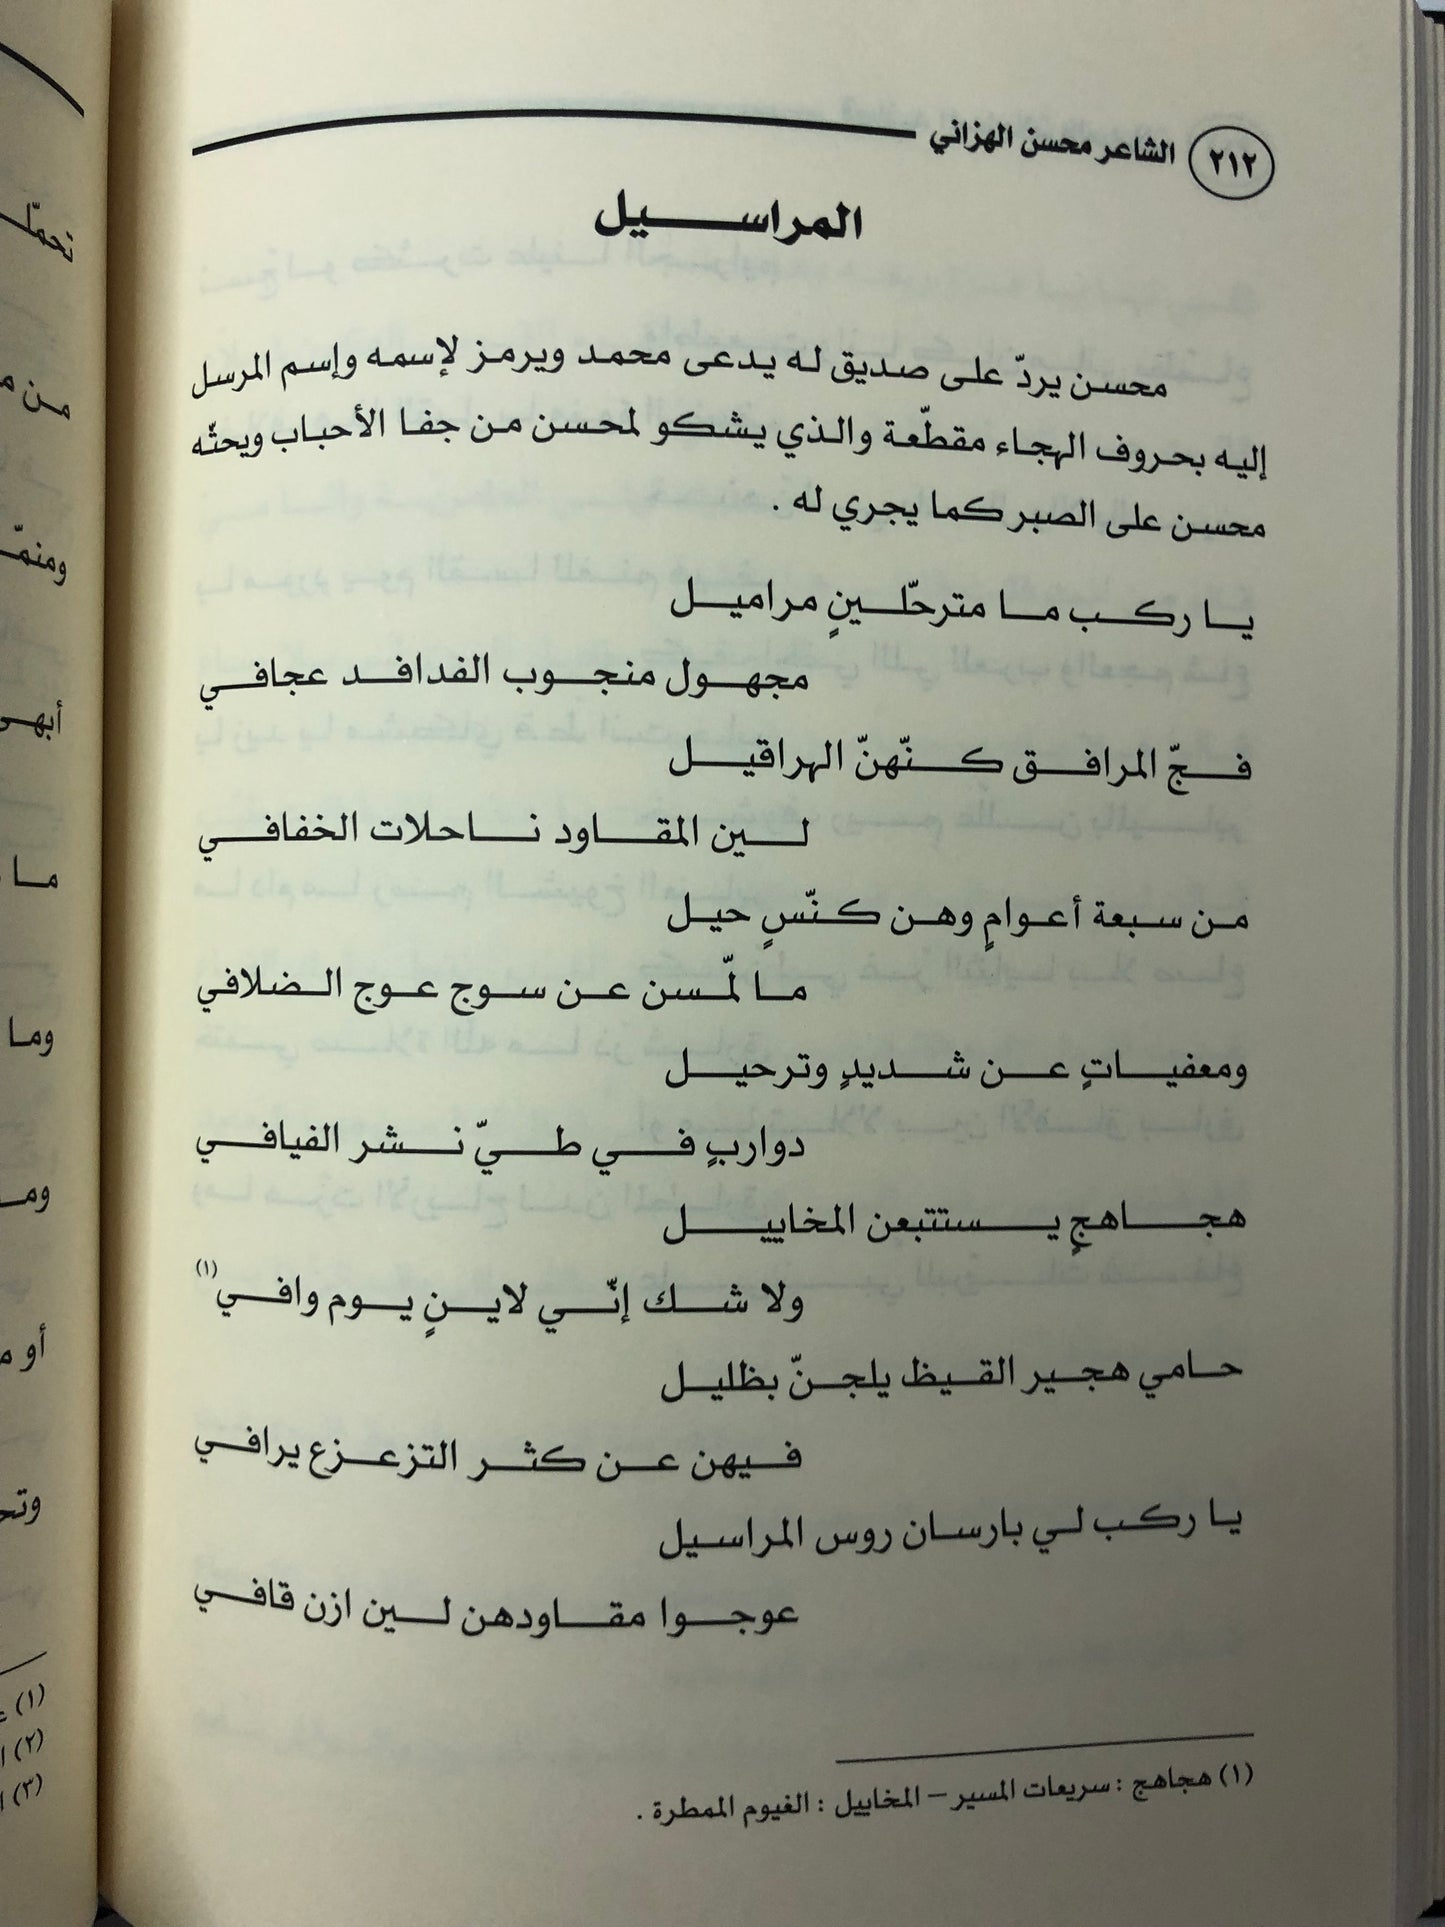 ٢١٢ الشاعر محسن الهزاني
المراسيل
محسن يردّ على صديق له يدعى محمد ويرمز لإسمه وإسم المرسل
إليه بحروف الهجاء مقطّعة والذي يشكو لمحسن من جفا الأحباب ويحثّه
محسن على الصبر كما يجري له .
يا ركب ما مترحّلينٍ مراميل
مجهول منجوب الفدافد عجافي
فجّ المرافق كنّهنّ الهراقيل
لين المقاود ناحلات الخفافي
من سبعة أعوامٍ وهن كنّسٍ حيل
ما لمّسن عن سوج عوج الضلافي
ومعفياتٍ عن شديدٍ وترحيل
دواربٍ في طيّ نشر الفيافي
هجاهجٍ يستتبعن المخاييل
ولا شك إنّي لاينٍ يوم وافي(١)
حامي هجير القيظ يلجنّ بظليل
فيهن عن كثر التزعزع يرافي
يا ركب لي بارسان روس المراسيل
عوجوا مقاودهن لين ازن قافي
(١) هجاهج : سريعات المسير – المخاييل : الغيوم الممطرة .
تحمّل
من م
ومنمّ
أبهى
ما
وما
وم
أو م
وتح
(١) ع
(٢) ا
(٣) ا